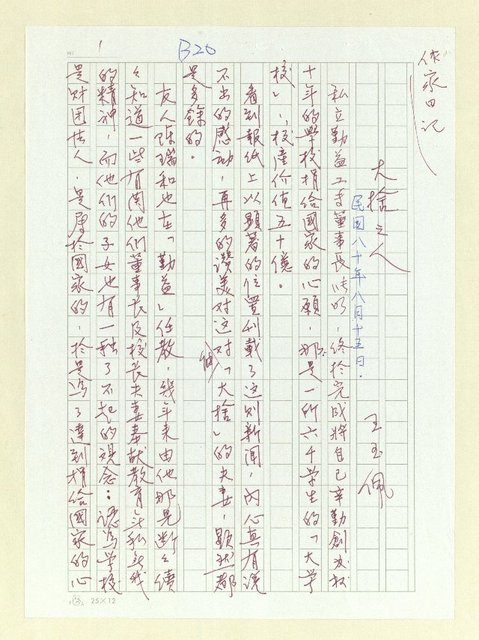 1
B20
作家日记
大捨之人
民国八十年八月十五日.
王玉佩
私立勤益工专董事长张明,终於完成將自己辛勤創办
十年的學校捐给國家的心願,那是一所六千學生的「大学
校」,校產价值五十億。
看到报纸上以顯著的位置刊載了这則新聞,內心真有说
不出的感动,再多的讚美对这对「大捨」的夫妻,顕然都
是多餘的。
友人陈瑞和也在「勤益」任教,幾年来由他那兒断々续
々知道一些有関他們董事长及校长夫妻奉献教育無私無我
的精神,而他們的子女也有一种了不起的观念:認為学校
是财团法人,是屬於國家的,於是為了達到捐给國家的心
25×12